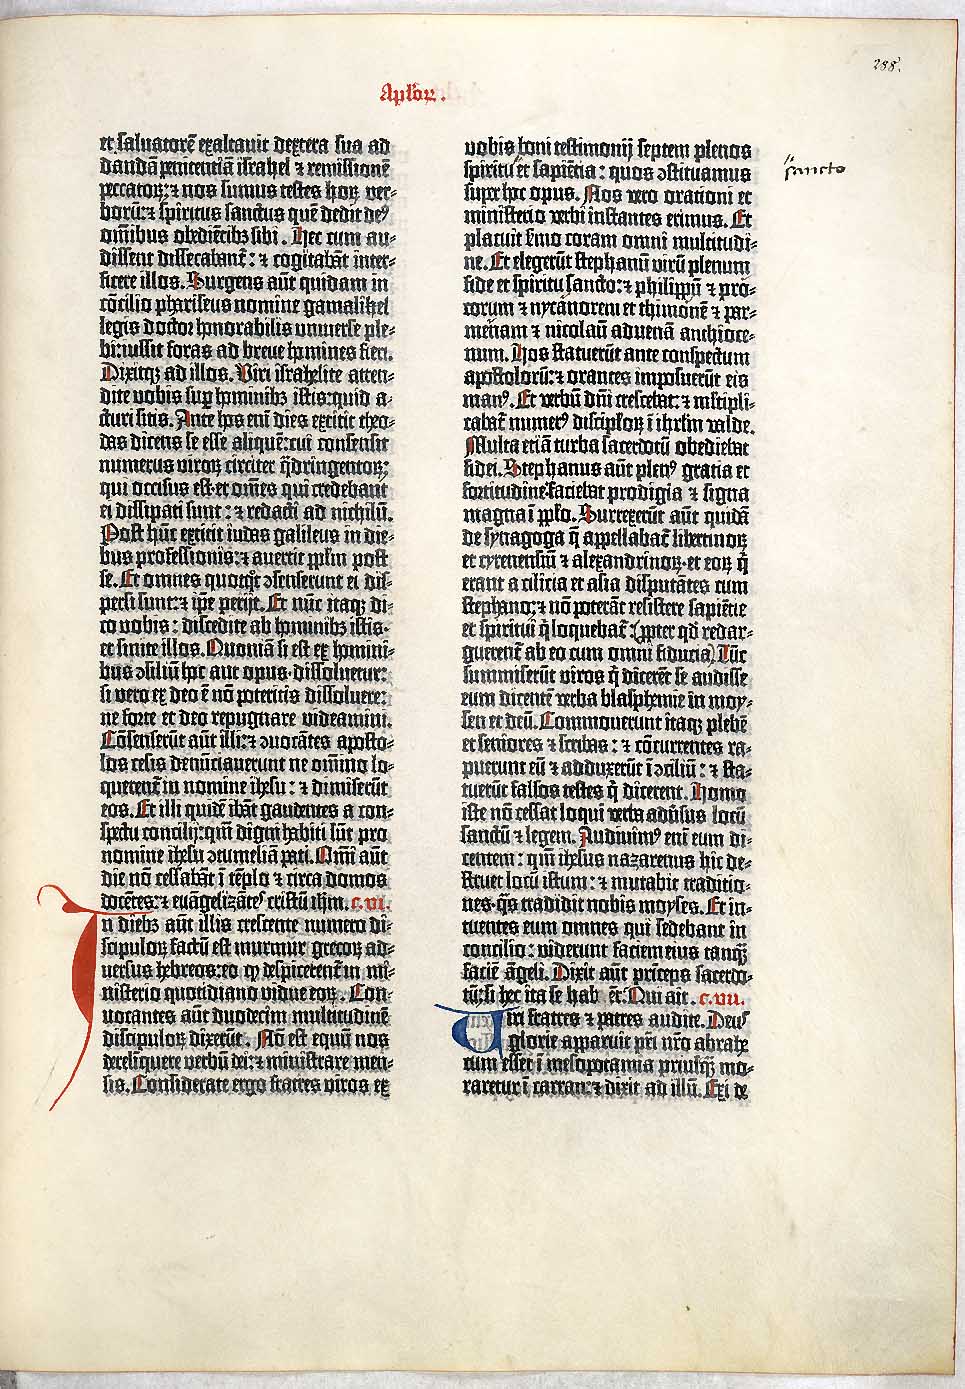 288.
Aplōꝝ.
et saluatorē exaltauit dextera sua ad
dandā penitentiā israhel ⁊ remissionē
peccatoꝝ: ⁊ nos sumus testes hoꝝ ver-
borū: ⁊ spiritus sanctus quē dedit de⁹
om̄ibus obediētibꝫ sibi. Hec cum au-
dissent dissecabant̄: ⁊ cogitabāt inter-
ficere illos. Surgens aūt quidam in
cōcilio phariseus nomine gamalihel
legis doctor honorabilis uniuerse ple-
bi: iussit foras ad breue homines fieri.
Dixitqꝫ ad illos. Viri israhelite atten-
dite vobis sup̄ hominibꝫ istis: quid a-
cturi sitis. Ante hos eni̅ dies extitit theo-
das dicens se esse aliquē: cui consensit
numerus viroꝝ circiter q̈dringentoꝝ:
qui occisus est· et om̄es qui credebant
ei dissipati sunt: ⁊ redacti ad nichilū.
Post hūc extitit iudas galileus in die-
bus professionis: ⁊ auertit pp̄lm post
se. Et omnes quotq̇t ɔsenserunt ei dis-
persi sunt: ⁊ ip̄e perijt. Et nūc itaqꝫ di-
co vobis: discedite ab hominibꝫ istis·
et sinite illos. Quoniā si est ex homini-
bus ɔsiliū hoc aut opus· dissoluetur:
si vero ex deo ē nō poteritis dissoluere:
ne forte et deo repugnare videamini.
Cōsenserūt aūt illi: ⁊ ɔuocātes aposto-
los cesis denūciauerunt ne om̄ino lo-
querent̄ in nomine ihesu: ⁊ dimiserūt
eos. Et illi quidē ibāt gaudentes a con-
spectu concilij: qm̄ digni habiti sūt pro
nomine ihesu ɔtumeliā pati. Om̄i aūt
die nō cessabāt ī tēplo ⁊ circa domos
docētes: ⁊ euāgelizāte⁹ cristū ihm̄. c. vi.
In diebꝫ aūt illis crescente numero di-
scipuloꝝ factū est murmur grecoꝝ ad-
uersus hebreos: eo qꝙ despicerent̄ in mi-
nisterio quotidiano vidue eoꝝ. Con-
uocantes aūt duodecim multitudinē
discipuloꝝ dixerūt. Nō est equū nos
derelīquere verbū dei: ⁊ ministrare men-
sis. Considerate ergo fratres viros ex
vobis boni testimonij septem plenos
spiritu″ et sapiētia: quos ɔstituamus
super hoc opus. Nos vero orationi et
ministerio verbi instantes erimus. Et
placuit s̄mo coram omni multitudi-
ne. Et elegerūt stephanū virū plenum
fide et spiritu sancto: ⁊ philippū ⁊ pro-
corum ⁊ nycanorem et thimonē ⁊ par-
menam ⁊ nicolaū aduenā anthioce-
num. Hos statuerūt ante conspectum
apostolorū: ⁊ orantes imposuerūt eis
man⁹. Et verbū dn̄i crescebat: ⁊ mltipli-
cabat̄ numer⁹ discipl̄oꝝ ī ihrl̄m valde.
Multa etiā turba sacerdotū obediebat
fidei. Stephanus aūt plen⁹ gratia et
fortitudine· faciebat prodigia ⁊ signa
magna ī pp̄lo. Surrexerūt aūt quidā
de synagoga q̄ appellabat̄ libertinoꝝ
et cyrenensiū ⁊ alexandrinoꝝ· et eoꝝ q̇
erant a cilicia et asia disputātes cum
stephano: ⁊ nō poterāt resistere sapiētie
et spiritui q̇ loquebat̄: (ꝓpter qd̄ redar-
guerent̄ ab eo cum omni fiducia). Tūc
summiserūt viros q̇ dicerēt se audisse
eum dicentē verba blasphemie in moy-
sen et deū. Commouerunt itaqꝫ plebē
et seniores ⁊ scribas: ⁊ cōcurrentes ra-
puerunt eū ⁊ adduxerūt ī ɔciliū: ⁊ sta-
tuerūt falsos testes q̇ dicerent. Homo
iste nō cessat loqui verba adūsus locū
sanctū ⁊ legem. Audiuim⁹ eni̅ eum di-
centem: qm̄ ihesus nazarenus hic de-
struet locū istum: ⁊ mutabit traditio-
nes· q̄s tradidit nobis moyses. Et in-
tuentes eum omnes qui sedebant in
concilio: viderunt faciem eius tanqꝫ
faciē āgeli. Dixit aūt priceps sacerdo-
tū: si hec ita se hab ēt. Qui ait. c. vii.
Viri fratres ⁊ patres audite. Deus
glorie apparuit pri̅ nr̄o abrahe
cum esset ī mesopotamia priusqꝫ mo-
raretur ī carran: ⁊ dixit ad illū. Exi de
″sancto